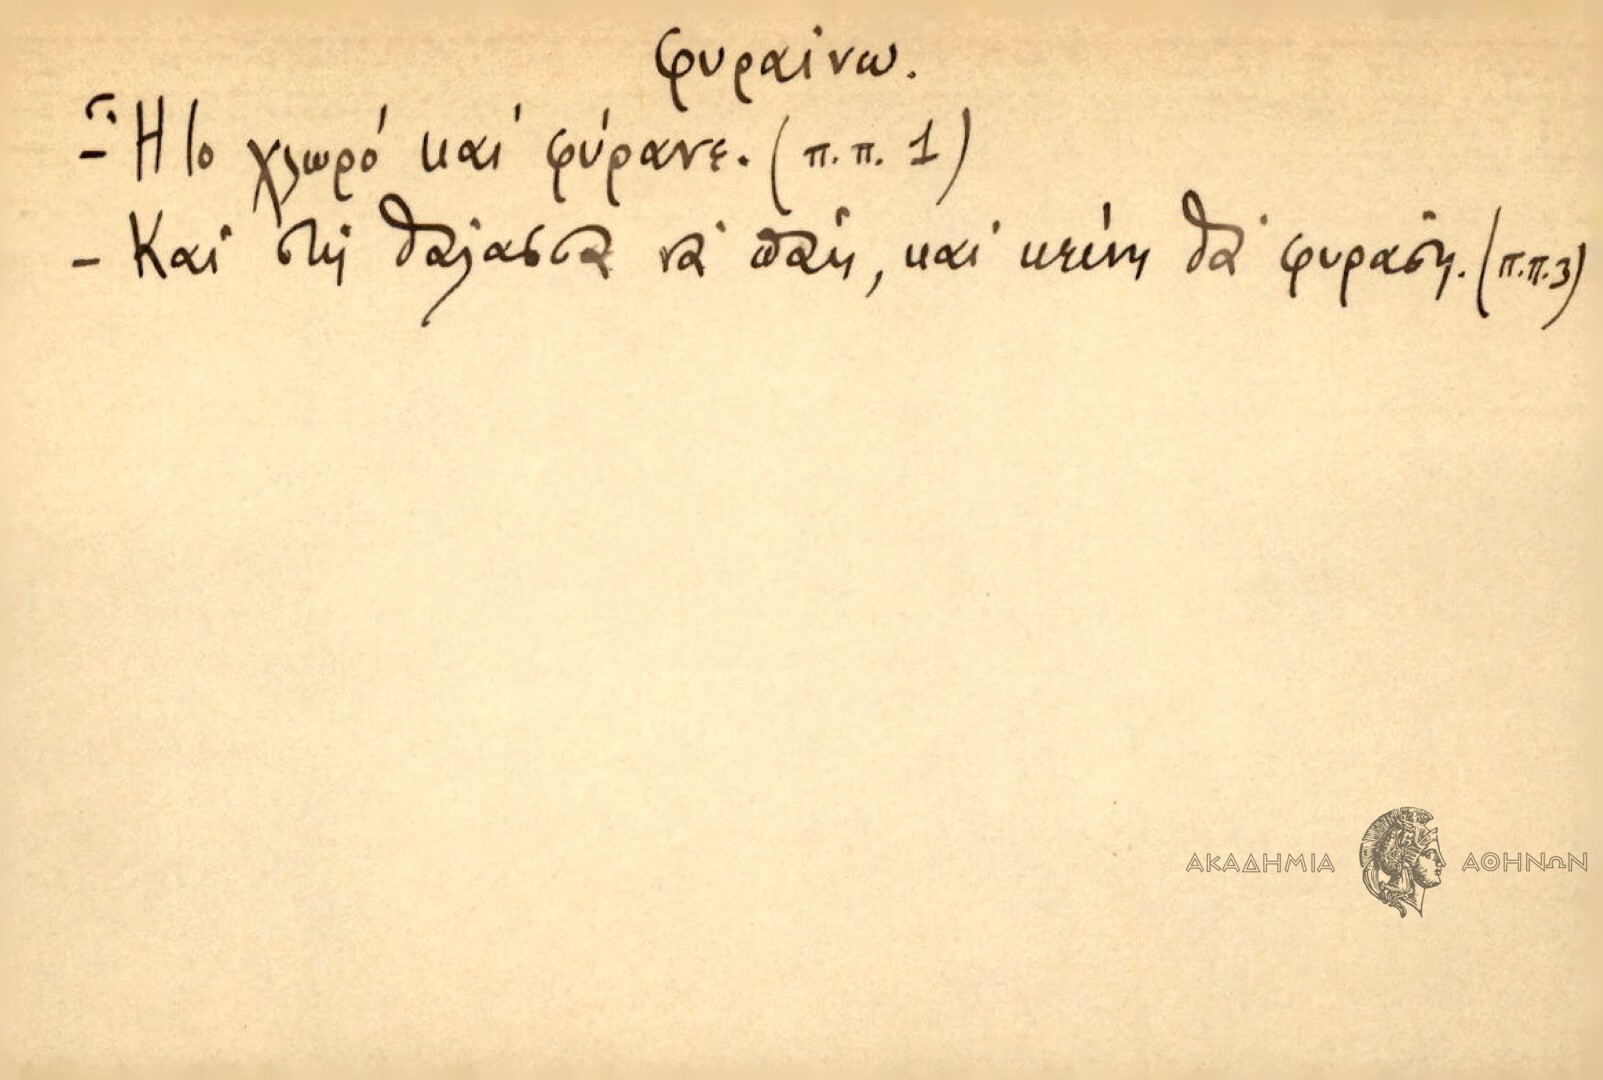 φυραίνω.
– Ἦτο χλωρό καί φύρανε. (π.π. 1)
– Καί στή θάλασσα νά πάη, καί κείνη θά φυράση. (π.π.3)
ΑΚΑΔΗΜΙΑ ΑΘΗΝΩΝ